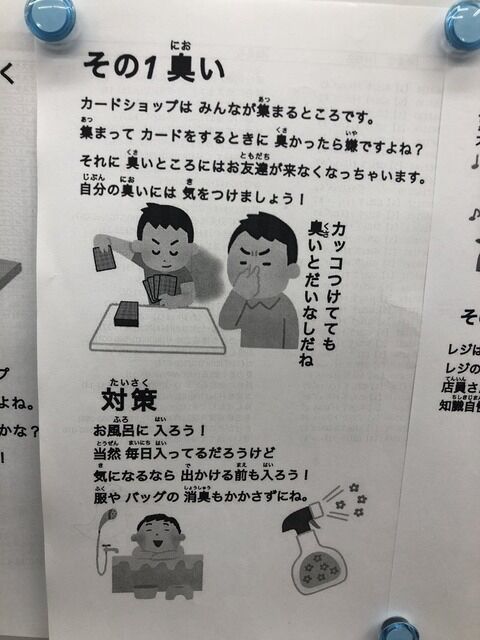 その1 臭い
カードショップは みんなが集まるところです。
集まって カードをするときに 臭かったら嫌ですよね?
それに 臭いところにはお友達が来なくなっちゃいます。
自分の臭いには 気をつけましょう!
カッコつけてても
臭いとだいなしだね
対策
お風呂に 入ろう!
当然 毎日入ってるだろうけど
気になるなら 出かける前も入ろう!
服や バッグの 消臭もかかさずにね。
く
プ
よね。
かな?
!
そ
レジは
レジの
店員さ
知識自慢